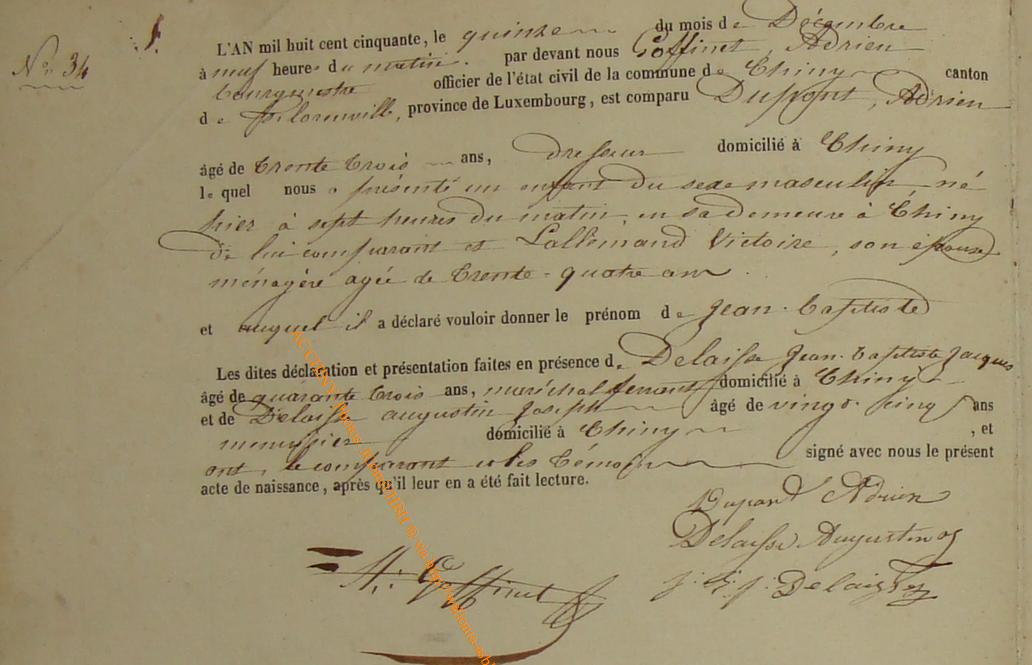 N° 34
L'AN mil huit cent cinquante, le quinze du mois de Décembre
à neuf heures du matin. par devant nous Goffinet, Adrien
bourgmestre officier de l'état civil de la commune de Chiny canton
de Florenville, province de Luxembourg, est comparu Dupont, Adrien
âgé de trente trois ans, domicilié à Chiny
lequel nous a présenté un enfant du sexe masculin, né
hier à sept heures du matin, en sa demeure à Chiny
de lui comparant et Lallemand Victoire, son épouse
ménagère agée de trente-quatre ans
et auquel il a déclaré vouloir donner le prénom de Jean-Baptiste
Les dites déclaration et présentation faites en présence de Delaisse Jean-Baptiste Jacques
âgé de quarante trois ans, maréchal ferrant domicilié à Chiny
et de Delaisse augustin Joseph âgé de vingt cinq ans
menuisier domicilié à Chiny , et
ont, le comparant et les témoins signé avec nous le présent
acte de naissance, après qu'il leur en a été fait lecture.
Dupont Adrien
Delaisse Augustin
A. Goffinet
j. b. j. Delaisse